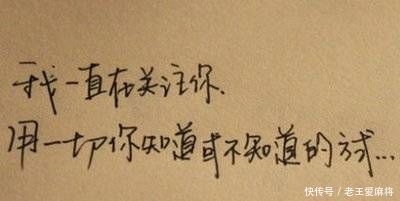 我一直在关注你.
用一切你知道或不知道的方式...
快传号/老王爱麻将